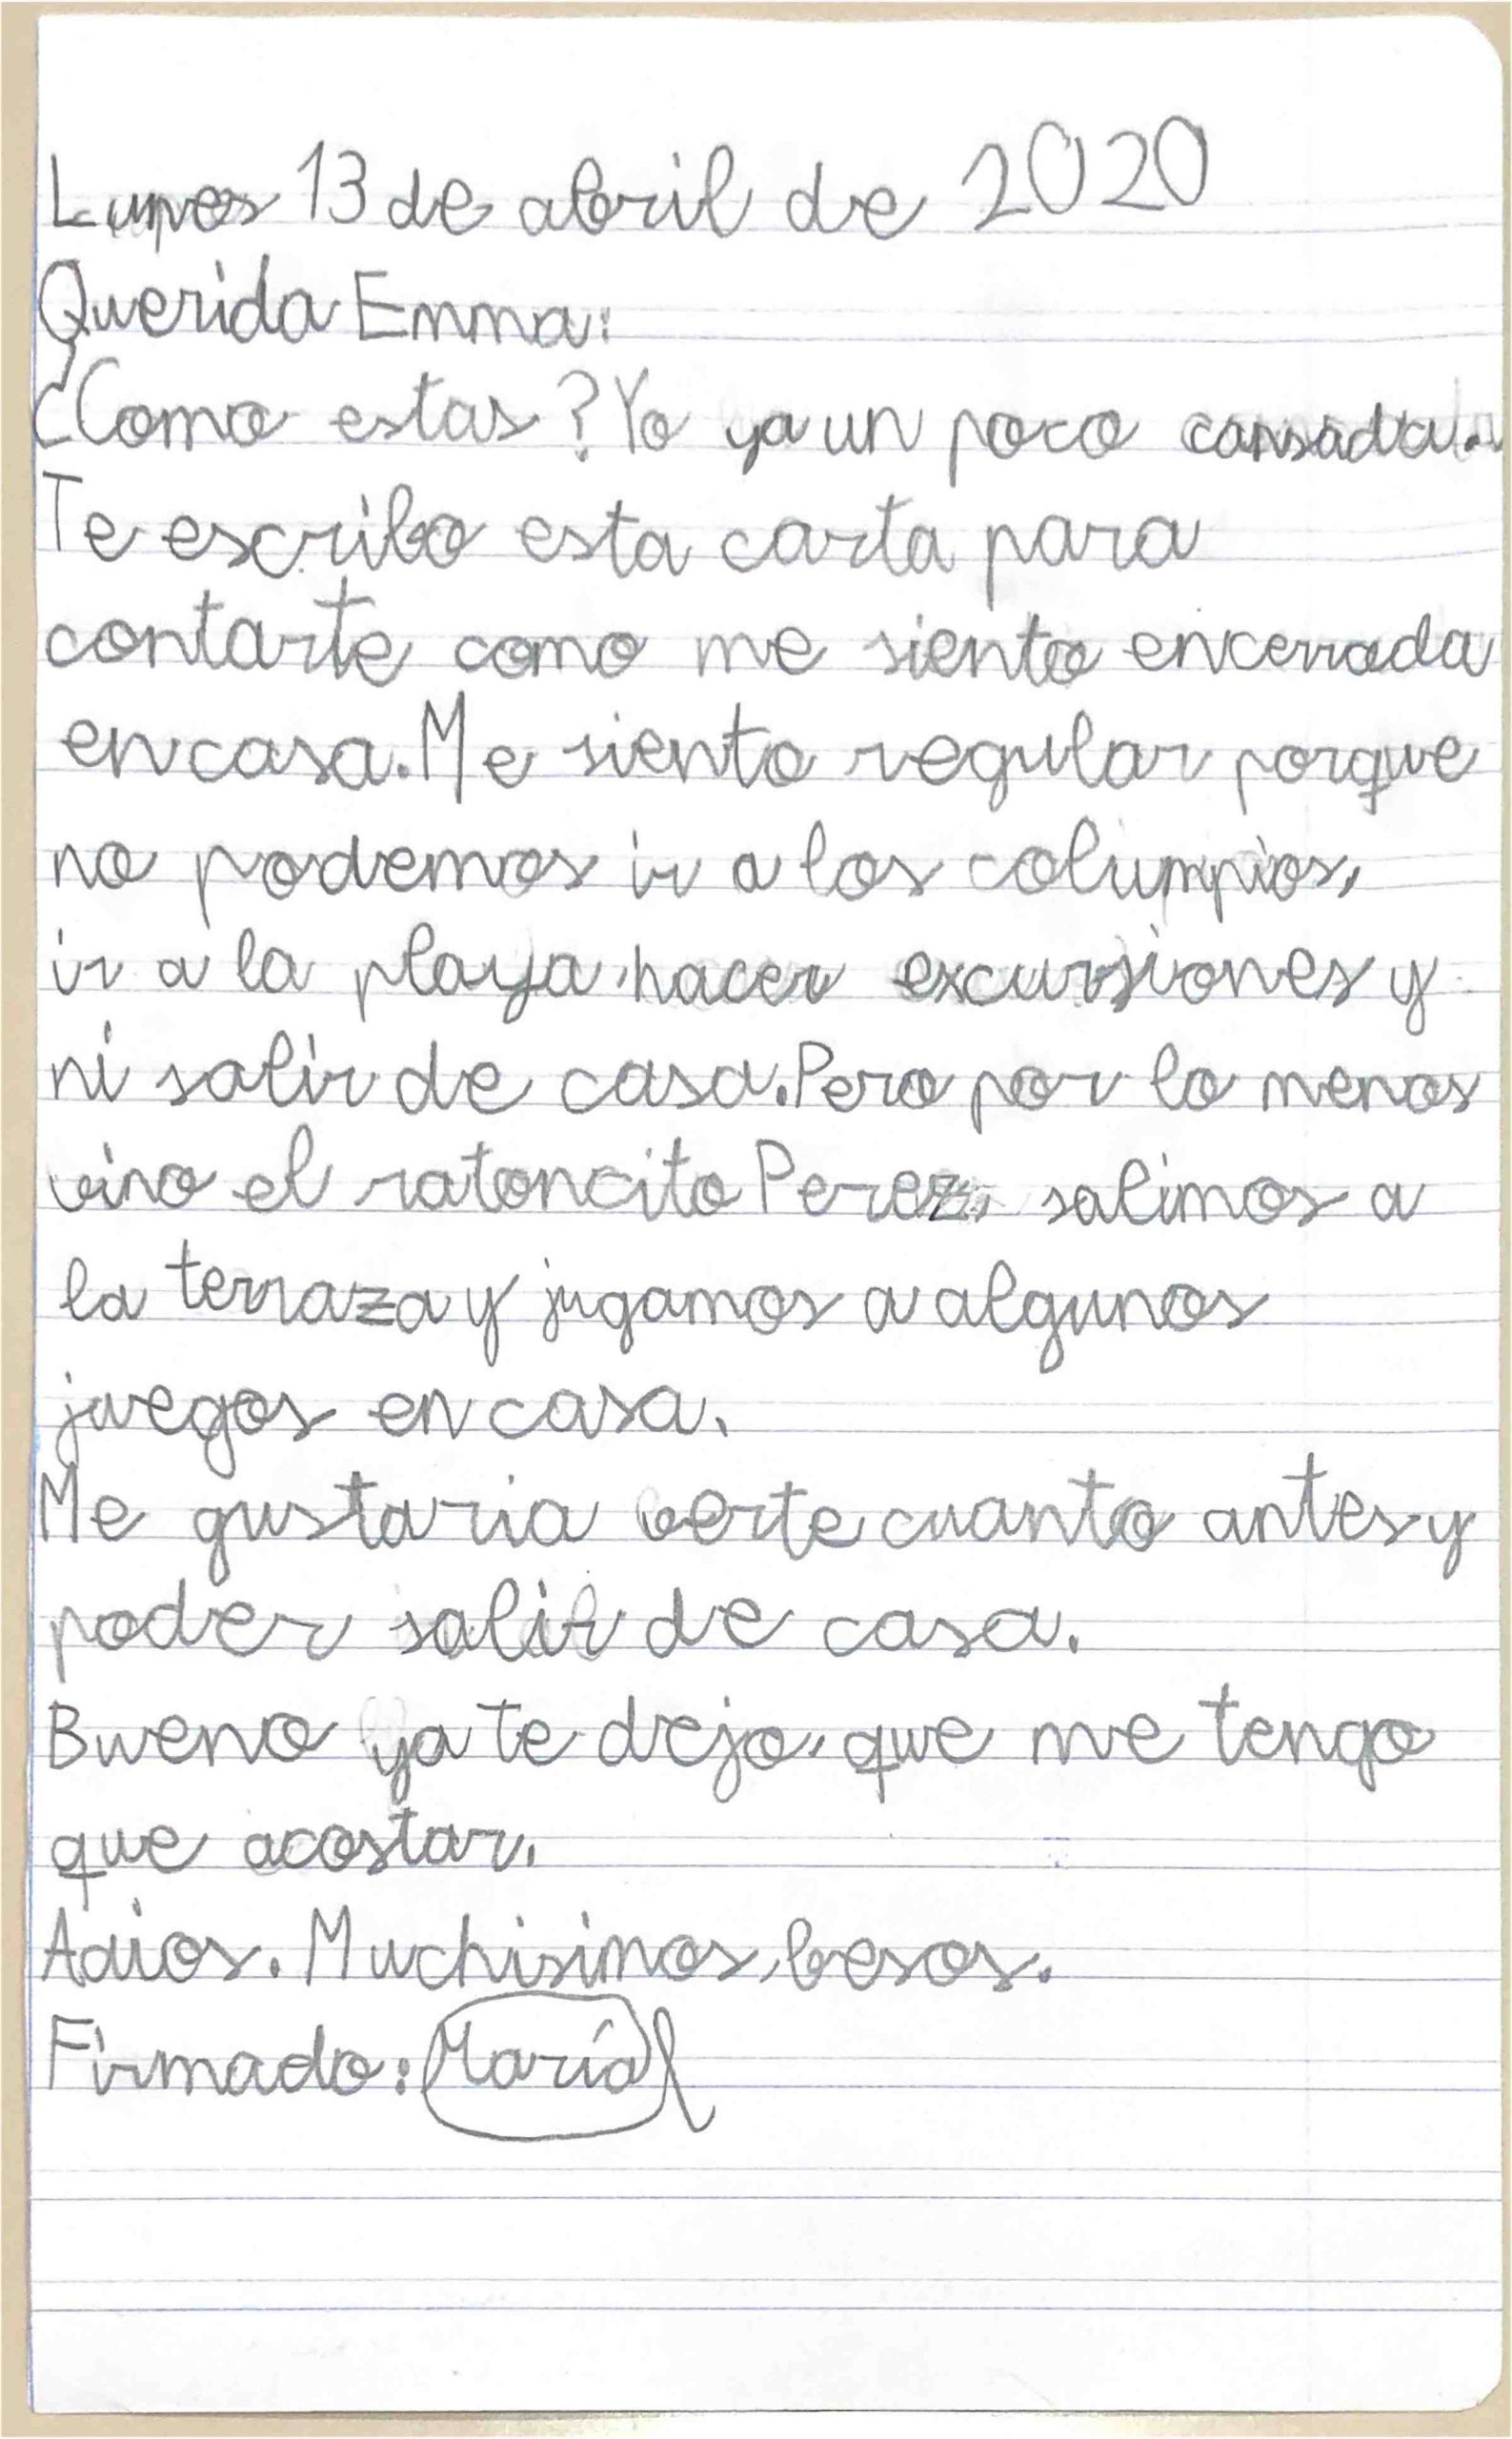 Lunes 13 de abril de 2020
Querida Emma:
¿Como estas? Yo ya un poco cansada.
Te escribo esta carta para
contarte como me siento encerrada
en casa. Me siento regular porque
no podemos ir a los columpios,
ir a la playa, hacer excursiones y
ni salir de casa. Pero por lo menos
vino el ratoncito Perez, salimos a
la terraza y jugamos a algunos
juegos en casa.
Me gustaria verte cuanto antes y
poder salir de casa.
Bueno ya te dejo, que me tengo
que acostar.
Adios. Muchisimos besos.
Firmado: María